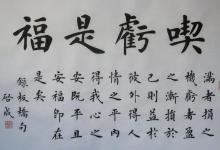 喫虧是福
滿者損之
機虧者盈
之漸損於
己則益於
彼外得人
情之平内
得我心之
安既平且
安福即在
是矣
録板橋句